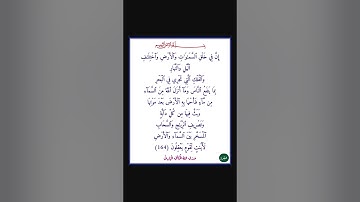 إِنَّ فِي خَلْقِ السَّمَاوَاتِ وَالْأَرْضِ وَاخْتِلَافِ
اللَّيْلِ وَالنَّهَارِ
وَالْفُلْكِ الَّتِي تَجْرِي فِي الْبَحْرِ
بِمَا يَنفَعُ النَّاسَ وَمَا أَنزَلَ اللَّهُ مِنَ السَّمَاءِ
مِن مَّاءٍ فَأَحْيَا بِهِ الْأَرْضَ بَعْدَ مَوْتِهَا
وَبَثَّ فِيهَا مِن كُلِّ دَابَّةٍ
وَتَصْرِيفِ الرِّيَاحِ وَالسَّحَابِ
الْمُسَخَّرِ بَيْنَ السَّمَاءِ وَالْأَرْضِ
لَآيَاتٍ لِّقَوْمٍ يَعْقِلُونَ (164)